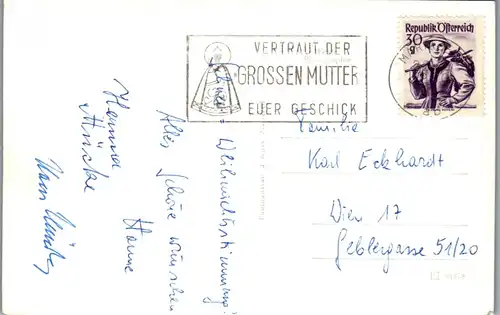 VERTRAUT DER
GROSSEN MUTTER
EUER GESCHICK
Republik Österreich
30
g
Familie
Karl Eckhardt
Wien 17
Geblergasse 51/20
Weihnachtsstimmung!
Alles Schöne wünschen
Hanne
Hannerl
Mücke